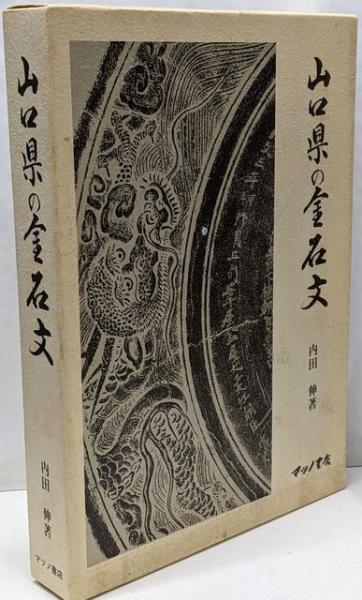 山口県の金石文
内田 伸著
マツノ書店
山口県の金石文
内田 伸著
マツノ書店